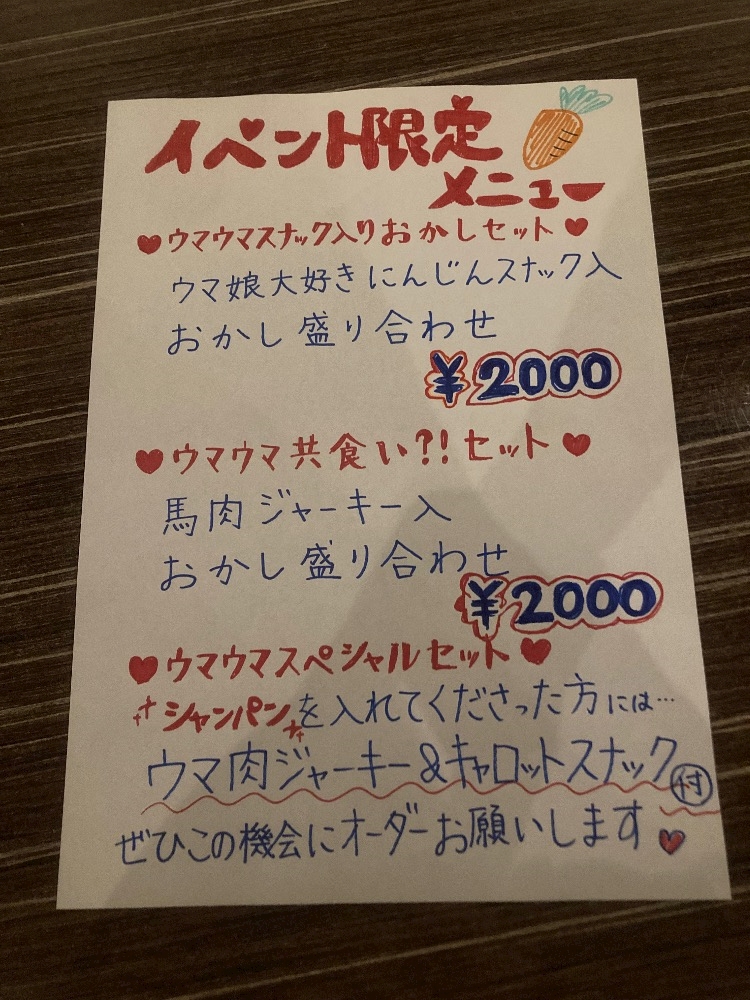 イベント限定
メニュー
♥ウマウマスナック入りおかしセット♥
ウマ娘大好きにんじんスナック入
おかし盛り合わせ
¥2000
♥ウマウマ共食い?!セット♥
馬肉ジャーキー入
おかし盛り合わせ
¥2000
♥ウマウマスペシャルセット♥
シャンパンを入れてくださった方には…
ウマ肉ジャーキー&キャロットスナック付
ぜひこの機会にオーダーお願いします♥